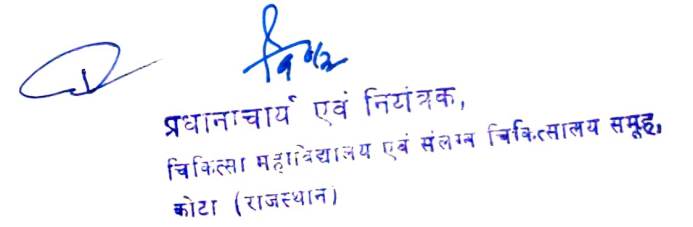 प्रधानाचार्य एवं नियंत्रक,
चिकित्सा महाविद्यालय एवं संलग्न चिकित्सालय समूह,
कोटा (राजस्थान)